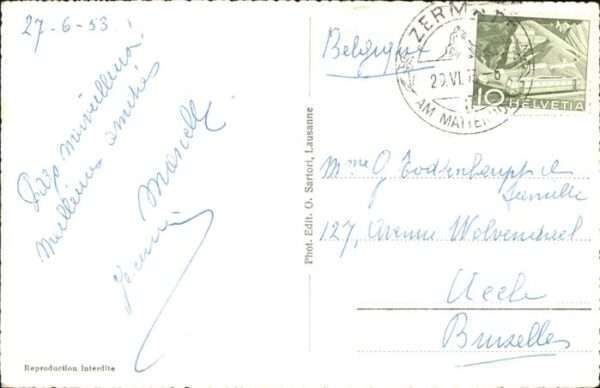 27-6-53.
Très merveilleux!
Meilleures amitiés
Marcelle
Reproduction Interdite
Phot. Edit. O. Sartori, Lausanne
Belgique
ZERMATT
29.VI.
AM MATTERHORN
10 HELVETIA
Mme O
famille
127, Avenue Wolvendael
Uccle
Bruxelles